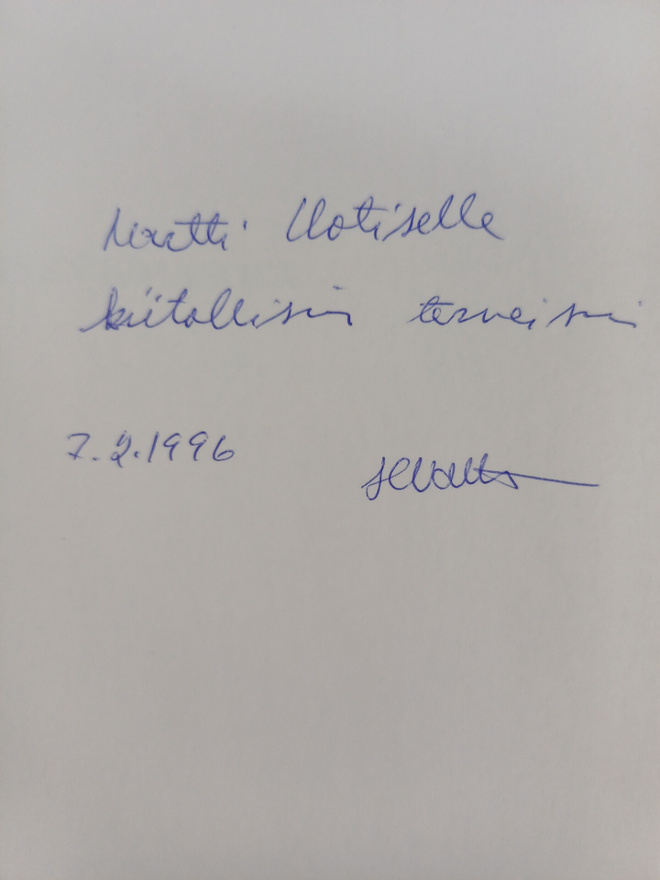 Martti Uotiselle
kiitollisin terveisin
7.2.1996